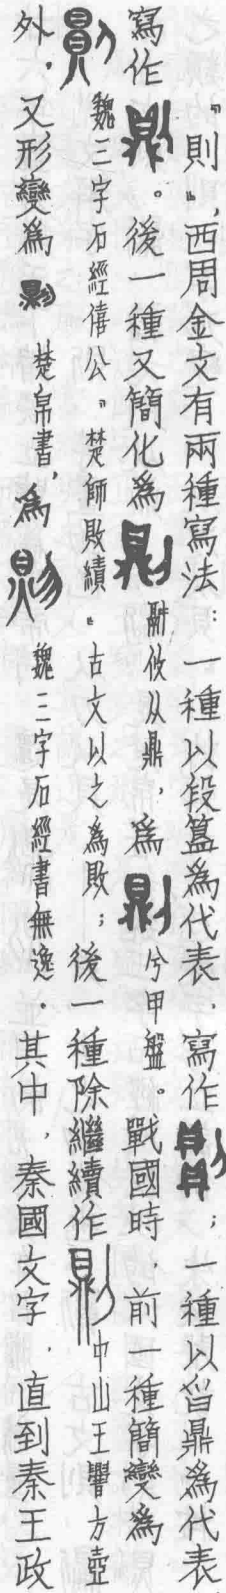 「則」，西周金文有兩種寫法：一種以段簋為代表，寫作；一種以曶鼎為代表，
寫作。後一種又簡化為𠟭攸从鼎，為兮甲盤。戰國時，前一種簡變為
魏三字石經僖公「楚師敗績」古文以之為敗；後一種除繼續作中山王䁐方壺
外，又形變為楚帛書，為魏三字石經書無逸。其中，秦國文字，直到秦王政